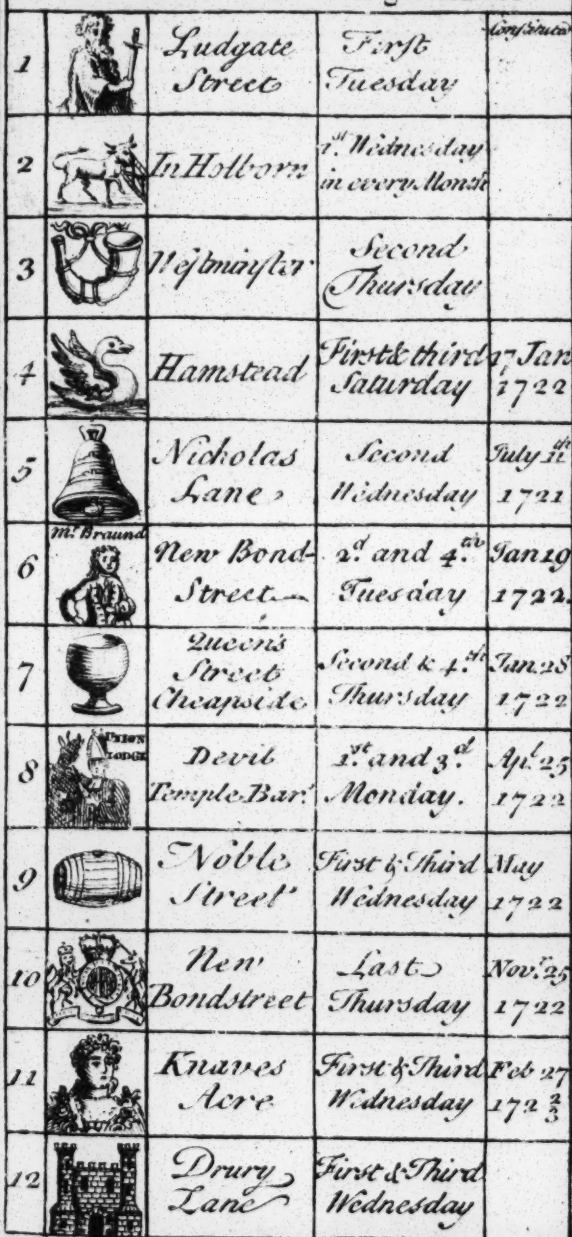 Constituted
1
Ludgate
Street
First
Tuesday
2
In Holborn
1st. Wednesday
in every Month
3
Westminster
Second
Thursday
4
Hamstead
First & third
Saturday
17 Jan
1722
5
Nicholas
Lane
Second
Wednesday
July 11th
1721
6
Mr. Braund
New Bond-
Street
2d. and 4th.
Tuesday
Jan 19
1722.
7
Queen's
Street
Cheapside
Second & 4th.
Thursday
Jan. 28
1722
8
UNION
LODGE
Devil
Temple Bar.
1st. and 3d.
Monday.
Apl. 25
1722
9
Noble
Street
First & Third
Wednesday
May
1722
10
New
Bondstreet
Last
Thursday
Novr. 25
1722
11
Knaves
Acre
First & Third
Wednesday
Feb 27
172 2/3
12
Drury
Lane
First & Third
Wednesday